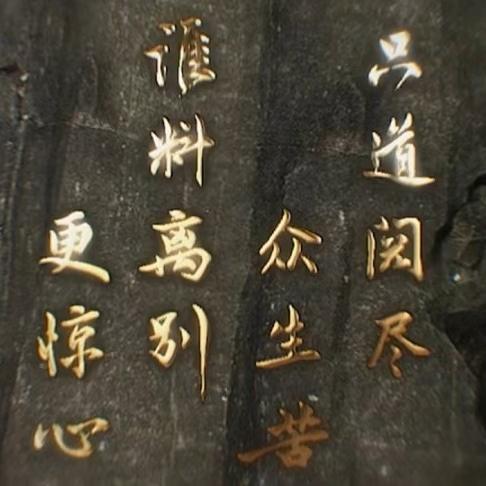 只道阅尽
众生苦
谁料离别
更惊心